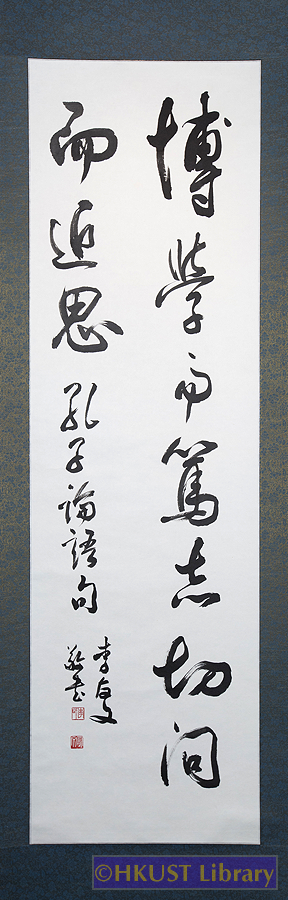 博學而篤志切問
而近思 孔子論語句
李直夫
敬書
©HKUST Library